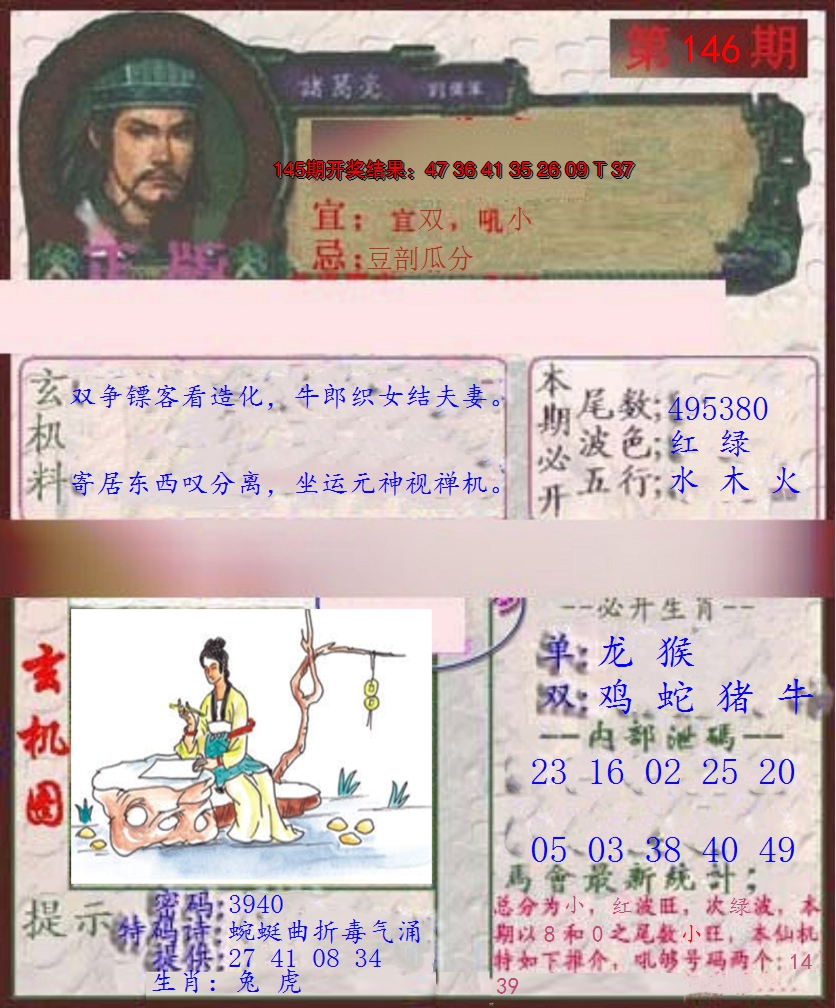 第 146 期
諸葛亮
145期开奖结果：47 36 41 35 26 09 T 37
宜：宜双，吼小
忌：豆剖瓜分
正版
玄机料
双争镖客看造化，牛郎织女结夫妻。
寄居东西叹分离，坐运元神视禅机。
本期必开
尾数；495380
波色；红 绿
五行；水 木 火
玄机图
--必开生肖--
单：龙 猴
双：鸡 蛇 猪 牛
--内部泄碼--
23 16 02 25 20
05 03 38 40 49
馬會最新統計；
总分为小，红波旺，次绿波，本
期以8和0之尾数小旺，本仙机
特如下推介，吼够号码两个：14
39
提示
密码：3940
特码诗：蜿蜒曲折毒气涌
提供：27 41 08 34
生肖：兔 虎